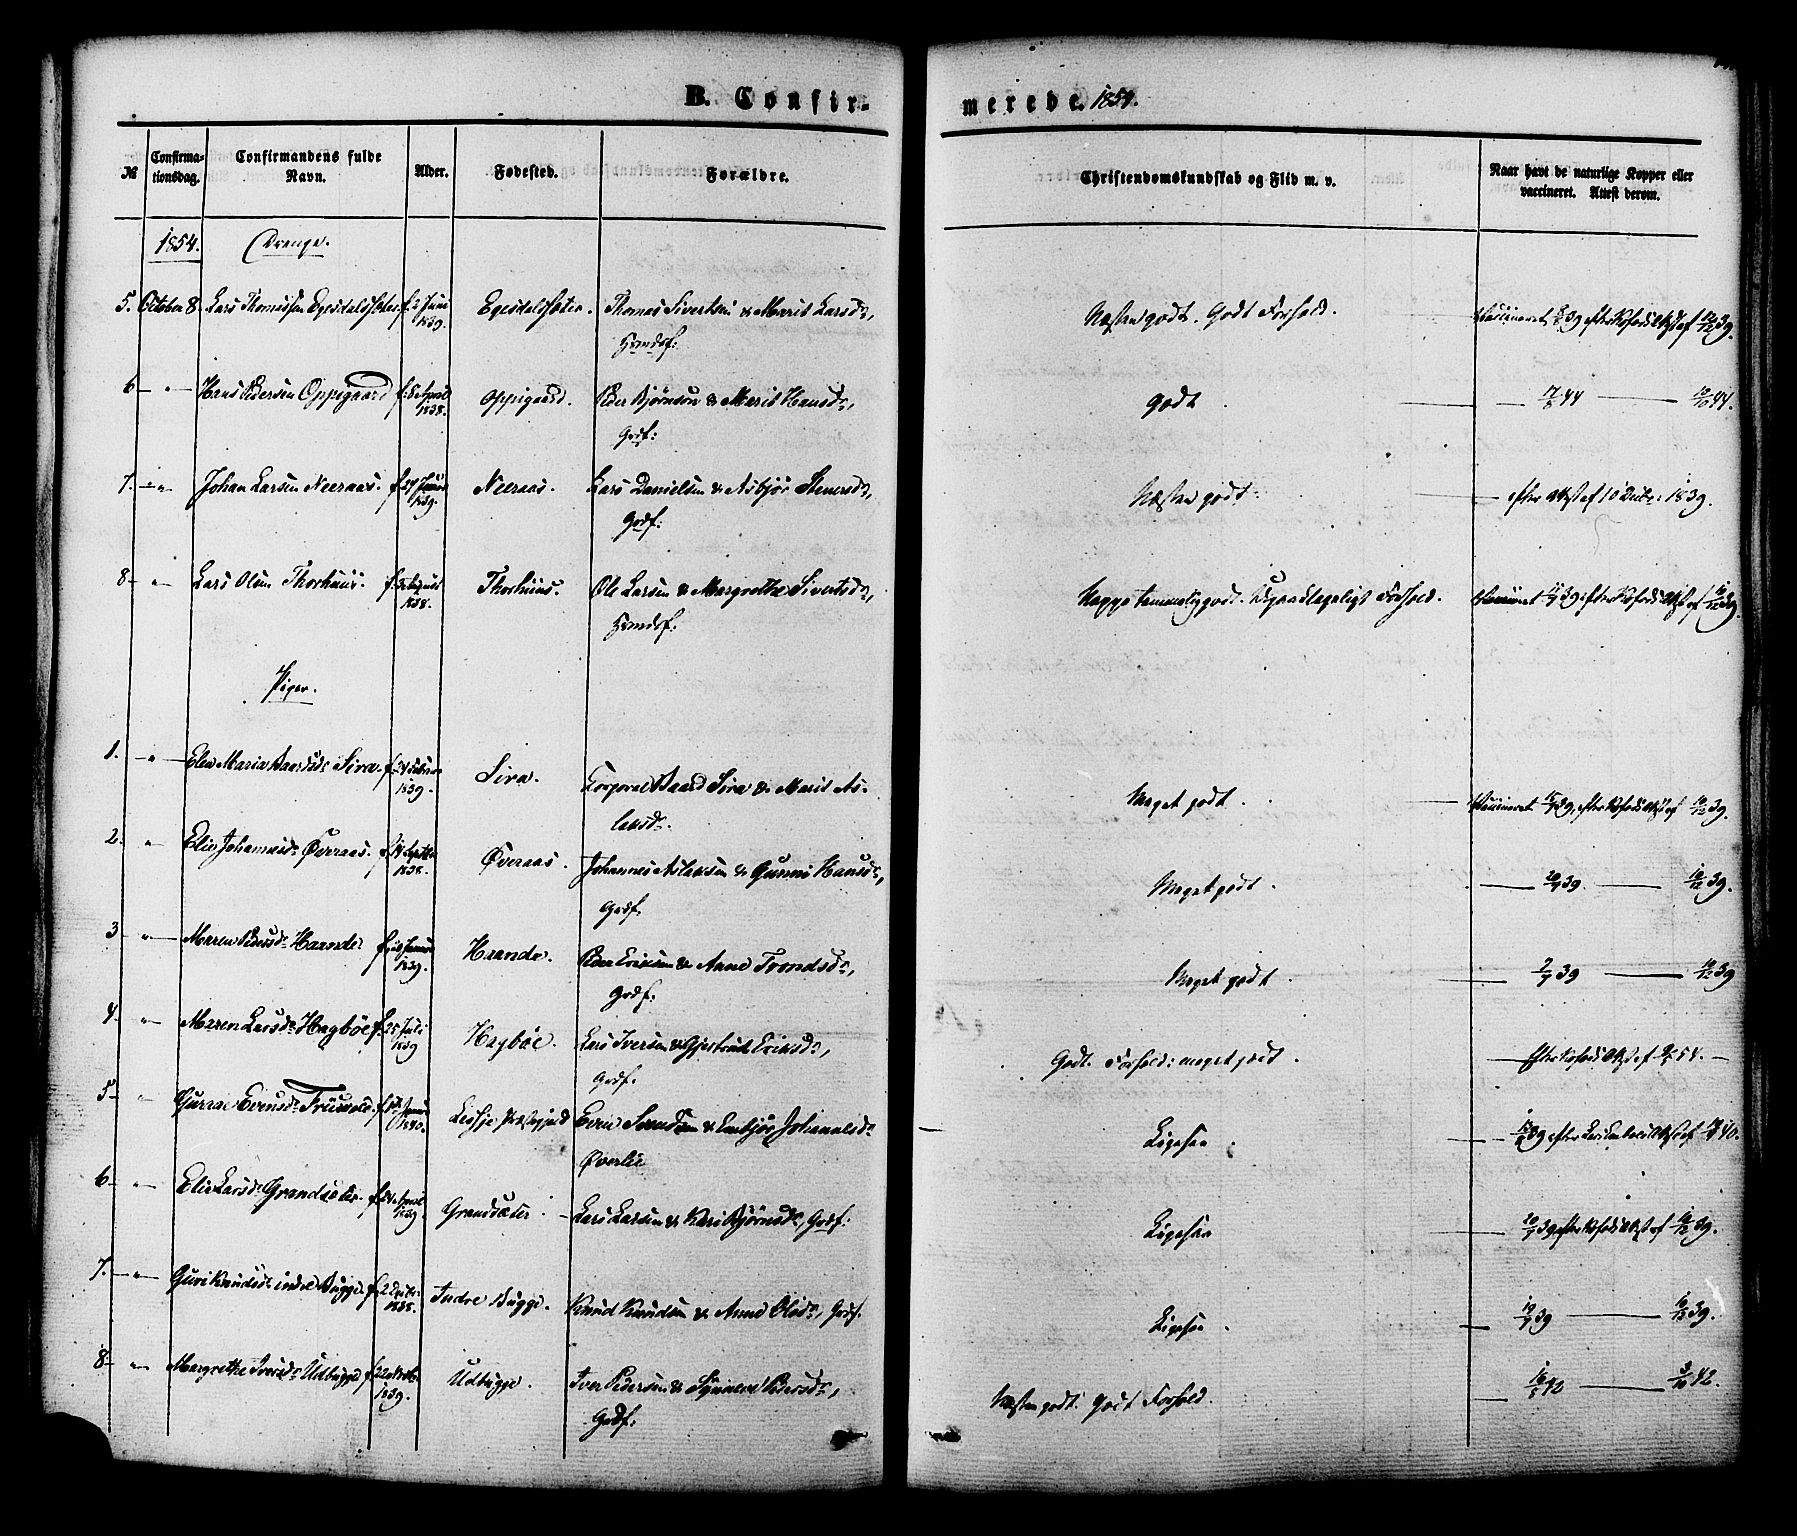 B. Confir-
merede. 1854.
№
Confirma-
tionsdag.
Confirmandens fulde
Navn.
Alder.
Fødested.
Forældre.
Christendomskundskab og Flid m. v.
Naar havt de naturlige Kopper eller
vaccineret. Attest derom.
1854. Drenge.
5. October 8. Lars Thomessen Eqesdalssæter f. Juni 1839. Eqesdalssæter. Thomas Sivertsen & Marit Larsdr,
Huusmdsf: Næsten godt. Godt Forhold. Vaccineret
6 - " - Hans Pedersen Oppigaard f: April 1838. Oppigaard. Peder Bjørnsen & Marit Hansdr,
Grdf: Godt 17/8 44 — 44.
7. - " - Johan Larsen Neeraas. f. 1839. Neeraas. Lars Danielsen & Asbjør Stenersdr,
Grdf: Næsten godt. — efter Attest af 10 Decbr: 1839.
8 - " Lars Olsen Thorhuus. f. August 1838. Thorhuus. Ole Larsen & Margrethe Sivertsdr,
Huusmdsf: Neppe temmelig godt. Upaaklageligt Forhold. Vaccineret
Piger.
1. - " - Elen Maria Baardsdr Sira. f. 24 Februar 1839. Sira. Corporal Baard Sira & Marit As-
laksdr. Meget godt. Vaccineret
2. " Elen Johannesdr Øveraas. f. 14 Septbr 1838. Øveraas. Johannes Aslaksen & Gunni Hansdr,
Grdf. Meget godt. 39 — 39.
3 - " - Maren Pedersdr Haande. f. Januar 1839. Haande. Peder Eriksen & Anne Trondsdr,
Grdf. Meget godt. 39 — 39
4. - " Maren Larsdr Hagbøe f. 25 Juli 1839 Hagbøe. Lars Iversen & Gjertrud Eriksdr,
Grdf. Godt. Forhold: meget godt.
5 - " Evensdr f. 1840. Lessje Præstegjeld Even & Johannesdr
Øverlie Ligesaa
6. - " - Elie Larsdr Grandsæter. f. April 1839. Grandsæter. Lars Larsen & Kari Bjørnsdr, Grdf: Ligesaa
7. - " - Guri Knudsdr indre Bugge. f. 1838. Indre Bugge. Knud Knudsen & Anne Olsdr, Grdf. Ligesaa. 39 — 39.
8 - " - Margrethe Iversdr Udbugge f. 22 1839. Udbugge. Iver Pedersen & Synneve Pedersdr,
Grdf: Næsten godt. Godt Forhold. 42 — 42.